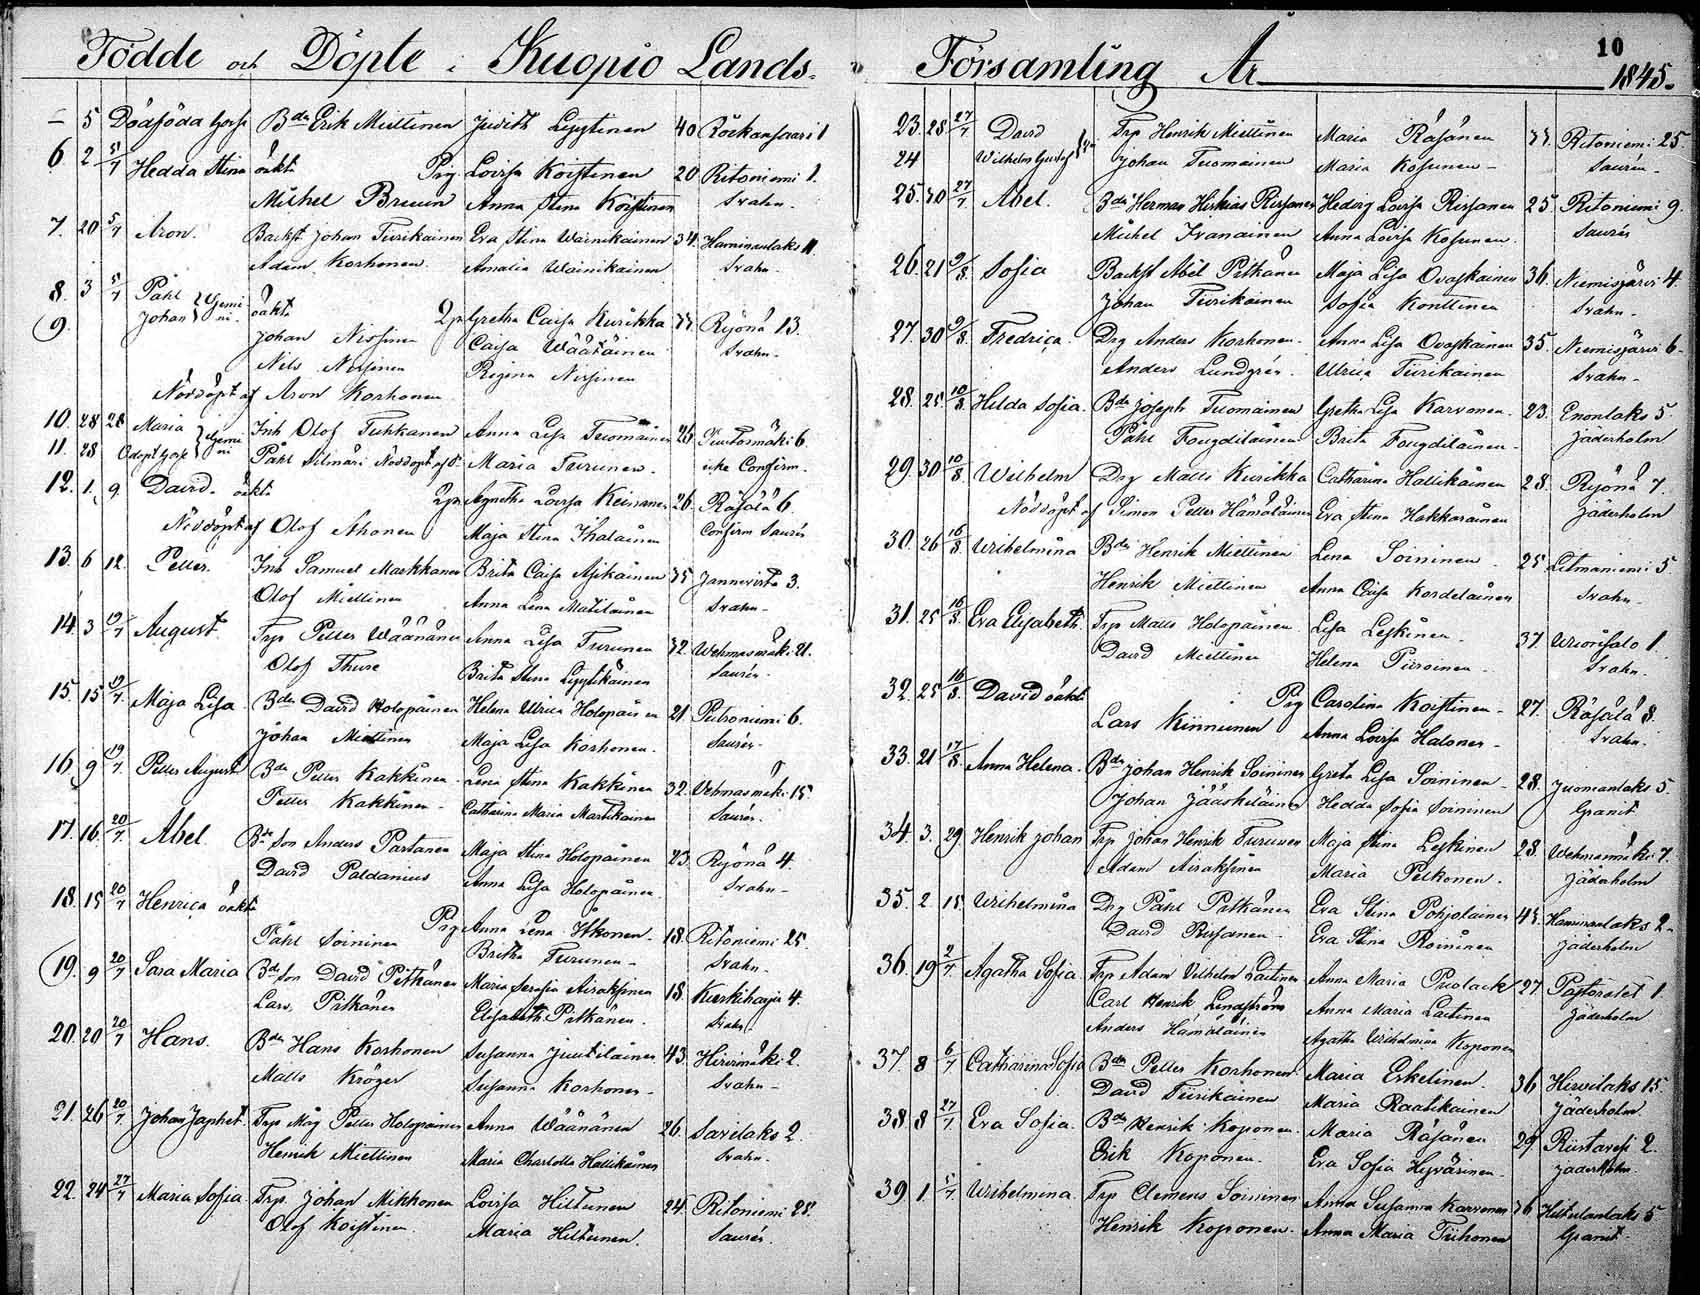 Födde och Döpte i Kuopio Lands-
– 5 Dödföda Gosse Bdr Erik Miettinen Judith Lyytinen 40 Röckansaari 1
6 2 5/7 Hedda Stina oäkta Pig. Lovisa Koistinen 20 Ritoniemi 1.
Michel Bruun Anna Stina Koistinen Svahn.
7. 20 5/7 Aron. Backst Johan Tiirikainen Eva Stina Wainikainen 34. Haminanlaks 11.
Adam Korhonen. Amalia Wainikainen Svahn.
8. 3 5/7 Påhl } Gemi- oäkta Qp. Gretha Caisa Kurikka Ryönä 13.
9. Johan } ni. Johan Nissinen Caisa Wäätäinen Svahn.
Nils Nissinen Regina Nissinen
Nöddöpt af Aron Korhonen.
10. 28 28 Maria } Gemi- Inh Olof Tuhkanen Anna Lisa Tuomainen 26
11. 28 Odöpt Gosse } ni Påhl Nöddöpt af d. Maria Turunen. icke Confirm.
12. 1. 9. David. oäkta Qp. Agnetha Lovisa 26. Räsälä 6.
Nöddöpt af Olof Ahonen Maja Stina Ikäläinen Confirm Saurén
13. 6 12. Petter. Inh Samuel Markkanen Brita Caisa Asikainen 35 Jännevirta 3.
Olof Miettinen Anna Lena Matilainen Svahn.
14. 3 19/7 August. Trp Petter Wäänänen Anna Lisa Turunen 32. Wehmasmäki 21.
Olof Thure Brita Stina Lyytikäinen Saurén.
15. 15 19/7. Maja Lisa. Bdr David Holopainen Helena Ulrica Holopainen 21. Petroniemi 6.
Johan Miettinen Maja Lisa Korhonen. Saurén.
16. 9 19/7. Petter August Bdr Petter Kakkinen. Lena Stina Kakkinen 32. Vehmasmäki 15.
Petter Kakkinen. Catharina Maria Martikainen Saurén.
17. 16. 20/7. Abel Bde Son Anders Partanen Maja Stina Holopainen 23. Ryönä 4.
David Paldanius Anna Lisa Holopainen. Svahn.
18. 15 20/7 Henrica oäkta Pig Anna Lena Itkonen. 18. Ritoniemi 25.
Påhl Soininen Britha Turunen. Svahn.
19. 9 20/7 Sara Maria Bde son David Pitkänen Maria Serafia Airaksinen 18. Kurkiharju 4.
Lars Pitkänen Elisabeth Pitkänen. Svahn.
20. 20 20/7 Hans. Bdr Hans Korhonen Susanna Juutilainen 43. Hirvimäki 2.
Matts Kröger Susanna Korhonen. Svahn.
21. 26 20/7 Johan Japhet. Trp Måg Petter Holopainen Anna Wäänänen 26. Savilaks 2.
Henrik Miettinen Maria Charlotta Hallikainen Svahn.
22. 24 27/7 Maria Sofia. Trp. Johan Mikkonen Lovisa Hiltunen 24. Ritoniemi 28.
Olof Koistinen Maria Hiltunen. Saurén.
10
Församling År 1845.
23. 28. 27/7 David Trp Henrik Miettinen Maria Räsänen 33. Ritoniemi 25.
24 Wilhelm Gustaf Johan Tuomainen Maria Kosunen. Saurén.
25. 30 27/7 Abel. Bdr Herman Hiskias Rissanen Hedvig Lovisa Rissanen 25. Ritoniemi 9.
Michel Ivanainen Anna Lovisa Kosunen. Saurén
26. 21 9/8. Sofia Backst Abel Pitkänen Maja Lisa Ovaskainen 36. Niemisjärvi 4.
Johan Tiirikainen Sofia Konttinen Svahn.
27. 30 9/8. Fredrica. Drg Anders Korhonen. Anna Lisa Ovaskainen 35. Niemisjärvi 6.
Anders Lundgrén. Ulrica Tiirikainen Svahn.
28. 25. 10/8. Hilda Sofia. Bdr Joseph Tuomainen Gretha Lisa Karvonen. 23. Enonlaks 5.
Påhl Fougdilainen Brita Fougdilainen. Jäderholm
29. 30 10/8. Wilhelm Drg Matts Kurikka Catharina Hallikainen 28. Ryönä 7.
Nöddöpt af Simon Petter Hämäläinen Eva Stina Hakkarainen Jäderholm
30. 26 16/8. Wilhelmina Bdr Henrik Miettinen Lena Soininen. 25 Litmaniemi 5.
Henrik Miettinen Anna Caisa Kordelainen Svahn.
31. 25 16/8. Eva Elisabeth. Trp Matts Holopainen. Lisa Leskinen. 37. Wuorisalo 1.
David Miettinen Helena Piiroinen. Svahn.
32. 25 16/8. David oäkta Pig Carolina Koistinen. 27. Räsälä 8.
Lars Kinnunen Anna Lovisa Halonen. Svahn.
33. 21 17/8. Anna Helena. Bdr Johan Henrik Soininen Greta Lisa Soininen. 28. Juomanlaks 5.
Johan Jääskeläinen Hedda Sofia Soininen Granit
34 3. 29. Henrik Johan Trp Johan Henrik Turunen Maja Stina Leskinen 28. Wehmasmäki 7.
Adam Airaksinen Maria Pelkonen. Jäderholm
35. 2 15. Wilhelmina Drg Påhl Pitkänen Eva Stina Pohjolainen 43. Haminanlaks 2.
David Rissanen. Eva Stina Roininen Jäderholm
36. 19 2/7 Agatha Sofia. Trp Adam Vilhelm Laitinen Anna Maria Puolack 27. Pastoratet 1.
Carl Henrik Lindström Anna Maria Laitinen Jäderholm
Anders Hämäläinen Agatha Wilhelmina Koponen
37. 8 6/7 Catharina Sofia Bdr Petter Korhonen Maria Eskelinen. 36 Hirvilaks 15.
David Tiirikainen Maria Raatikainen Jäderholm
38. 8 27/7 Eva Sofia. Bdr Henrik Koponen. Maria Räsänen 29. Riistavesi 2.
Erik Koponen. Eva Sofia Hyvärinen. Jäderholm
39. 1. 5/7 Wilhelmina. Trp Clemens Soininen Anna Susanna Karvonen 36 Hiltulanlaks 5
Henrik Koponen. Anna Maria Tiihonen Granit.